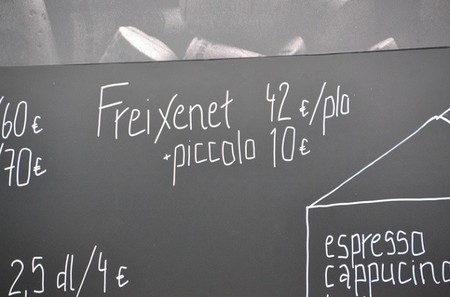 /60€
/70€
Freixenet 42€/plo
+piccolo 10€
2,5 dl/4€
espresso
cappucino